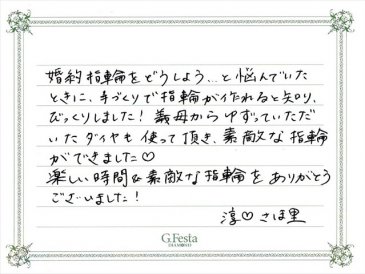 婚約指輪をどうしよう…と悩んでいた
ときに、手づくりで指輪が作れると知り、
びっくりしました！義母からゆずっていただ
いたダイヤも使って頂き、素敵な指輪
ができました♡
楽しい時間&素敵な指輪をありがとう
ございました！
淳♡さほ里
G.Festa
DIAMOND